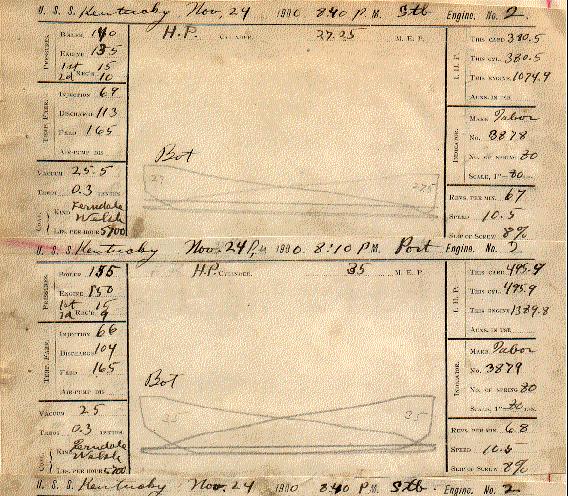 U. S. S. Kentucky Nov. 24 1900. 8:40 P.M. Stb Engine. No. 2.
PRESSURES. BOILER 140 H.P. CYLINDER. 27.25 M. E. P. I. H. P. THIS CARD 380.5
ENGINE 135 THIS CYL. 380.5
1st REC'R. 15 THIS ENGINE 1074.9
2d 10 AUXS. IN USE
TEMP. FAHR. INJECTION 69
DISCHARGE 113 INDICATOR. MAKE Tabor
FEED 165 No. 3878
AIR-PUMP DIS No. OF SPRING 80
Bot SCALE, 1"=80
VACUUM 25.5 27 27.5
THROT. 0.3 TENTHS REVS. PER MIN. 67
COAL. KIND Ferndale Welsh SPEED 10.5
LBS. PER HOUR 5700 SLIP OF SCREW 8%
U. S. S. Kentucky Nov. 24 P.M. 1900. 8:10 P.M. Port Engine. No.
PRESSURES. BOILER 155 H.P. CYLINDER. 35 M. E. P. I. H. P. THIS CARD 495.9
ENGINE 150 THIS CYL. 495.9
1st REC'R. 15 THIS ENGINE 1389.8
2d 9 AUXS. IN USE
TEMP. FAHR. INJECTION 66
DISCHARGE 104 INDICATOR. MAKE Tabor
FEED 165 No. 3879
AIR-PUMP DIS No. OF SPRING 80
Bot SCALE, 1"=80 LBS.
VACUUM 25 35
THROT. 0.3 TENTHS REVS. PER MIN. 6.8
COAL. KIND Ferndale Welsh SPEED 10.5
LBS. PER HOUR 5700 SLIP OF SCREW 8%
U. S. S. Kentucky Nov. 24 1900 8:40 P.M. Stb. Engine. No. 2